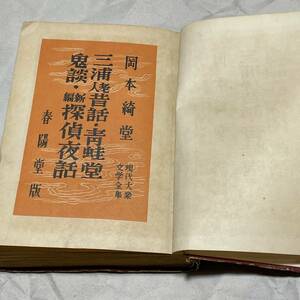 岡本綺堂
三浦老人昔話・青蛙堂
鬼談・新編探偵夜話
現代大衆
文学全集
春陽堂版